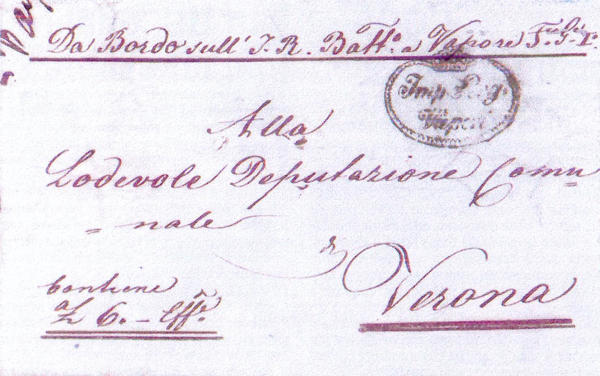 Da Bordo sull' I. R. Batt.o a Vapore
Imp. Reg.
Vapori
Alla
Lodevole Deputazione Comu
= nale
di
Verona
Contiene
£ 6.- Eff.e